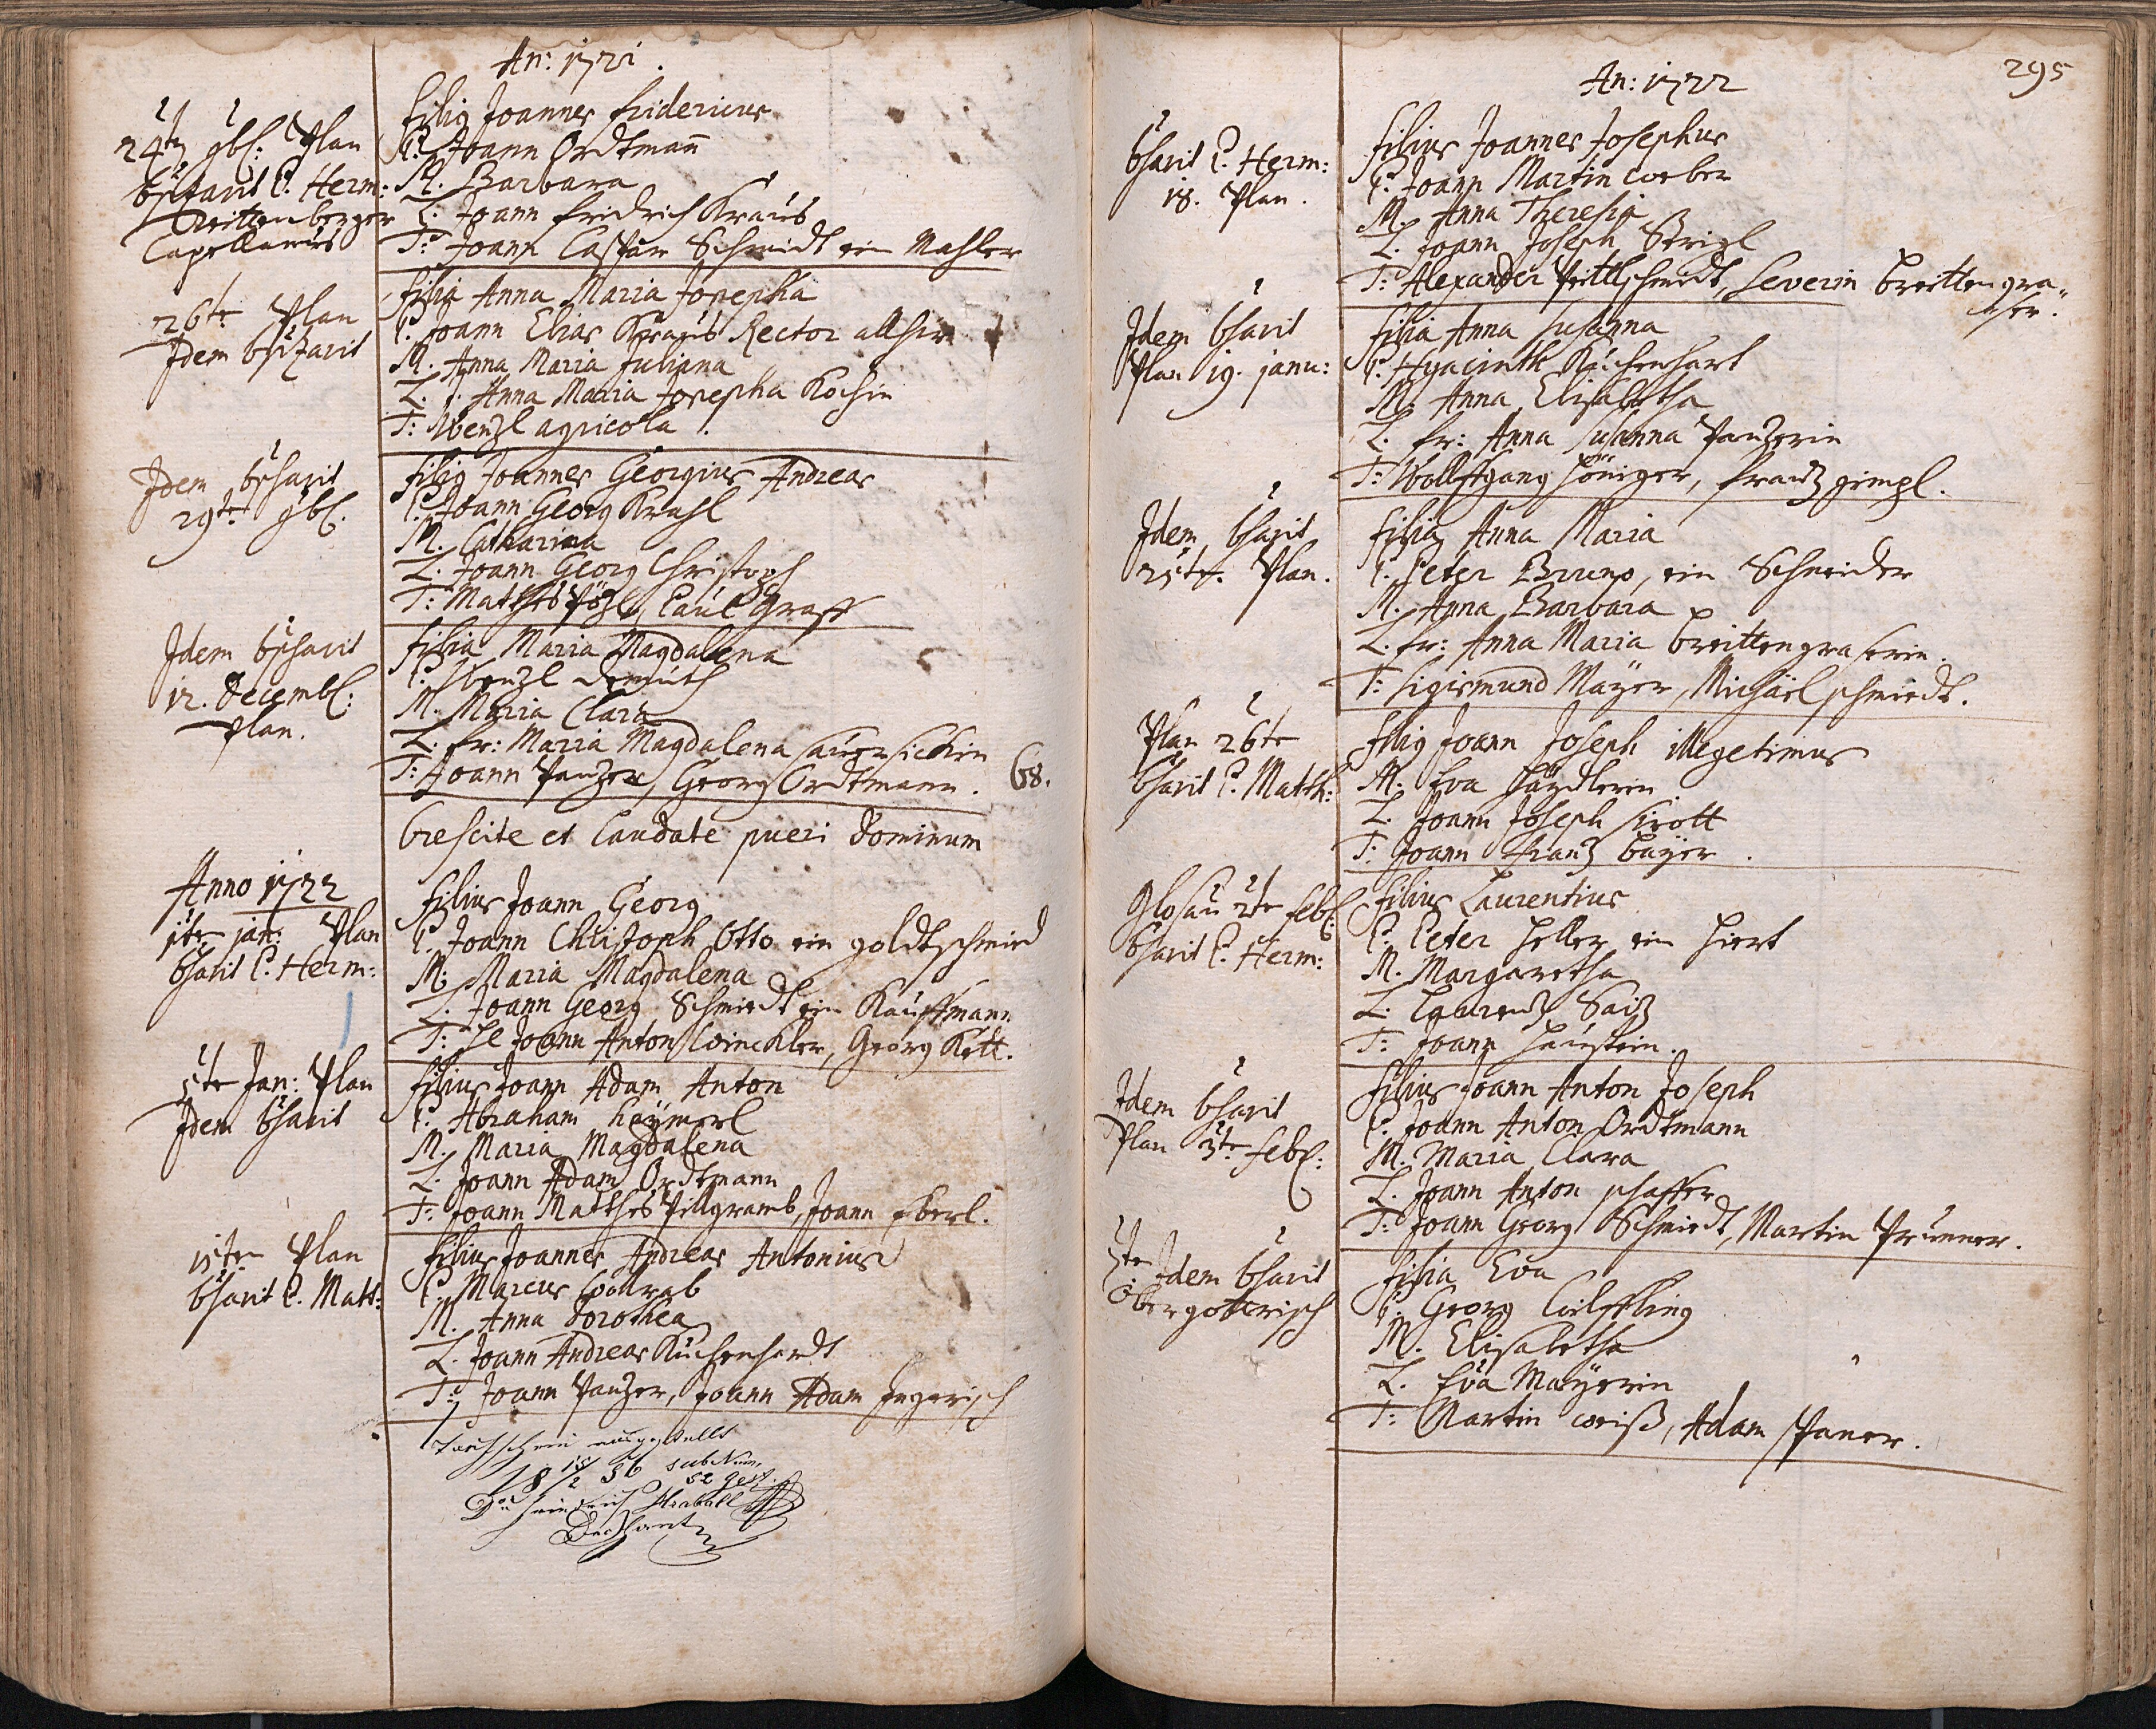 An: 1721.
24te 9b: Plan
bapizavit P. Herm:
Breittenberger
Capellanus
filig Joannes fridericus
P. Joann Ordtmann
M. Barbara
L. Joann fridrich Kraus
T: Joann Caspar Schmidt ein Mahler
26te Plan
Idem bapizavit
filia Anna Maria Josepha
P. Joann Elias Kraus Rector allhier
M. Anna Maria Juliana
L. Anna Maria Josepha Kochin
T: Wenzl agricola.
Idem bapavit
29te 9b:
filig Joannes Georgius Andreas
P. Joann Georg Krahl
M. Catharina
L. Joann Georg Christoph
T: Matthes Pözl, Paul Graff
Idem bapavit
12. Decemb:
Plan.
filia Maria Magdalena
P. Wenzl Demuth
M. Maria Clara
L. fr: Maria Magdalena
T: Joann Panzer, Georg Ordtmann. 68.
Crescite et Laudate pueri Dominum
Anno 1722
1te jan: Plan
bapavit P. Herm:
filius Joann Georg
P. Joann Christoph Otto ein goldtschmied
M. Maria Magdalena
L. Joann Georg Schmidt ein Kauffmann
T: Joann Anton Winckler, Georg Kött.
5te Jan: Plan
Idem bapavit
filius Joann Adam Anton
P. Abraham haÿmerl
M. Maria Magdalena
L. Joann Adam Ordtmann
T: Joann Matthes Pillgramb, Joann Eberl.
15ten Plan
bapavit P. Matt:
filius Joannes Andreas Antonius
P. Marcus Wollrab
M. Anna Dorothea
L. Joann Andreas Küchenhardt
T: Joann Panzer, Joann Adam
Taufschein ausgestellt
18 15/2 56 sub Num.
52 Gest.
Dechant
295
An: 1722
bapavit P. Herm:
18. Plan.
filius Joannes Josephus
P. Joann Martin weber
M. Anna Theresia
L. Joann Joseph Strigl
T: Alexander Prittlschmidt, Severin breittengra-
ser.
Idem bapavit
Plan 19. janu:
filia Anna Susanna
P. Hyacinth Küchenhart
M. Anna Elisabetha
L. fr: Anna Susanna Panzerin
T: Wollfgang Höniger, franz gimpl.
Idem bapavit
25te. Plan.
filia Anna Maria
P. Peter Bruno, ein Schneider
M. Anna Barbara
L. fr: Anna Maria breittengraserin.
T: Sigismund Maÿer, Michael schmidt.
Plan 26te
bapavit P. Matth:
filig Joann Joseph illegetimus
M: Eva
L. Joann Joseph
T: Joann franz baÿer.
Glosau 2te feb:
bapavit P. Herm:
filius Laurentius
P. Peter Heller ein Hiert
M. Margaretha
L. Laurenz Saiz
T: Joann
Idem bapavit
Plan 3te. feb:
filius Joann Anton Joseph
P. Joann Anton Ordtmann
M. Maria Clara
L. Joann Anton schaffer
T: Joann Georg Schmidt, Martin Prunner.
5te Idem bapavit
Obergotterisch
filia Eva
P. Georg
M. Elisabetha
L. Eva Maÿerin
T: Martin weiß, Adam